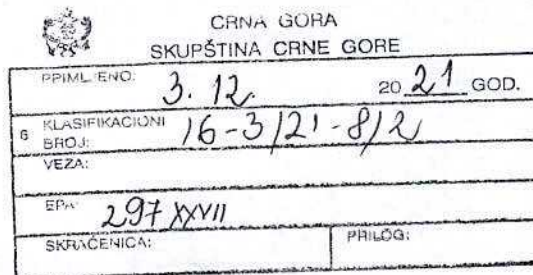 CRNA GORA
SKUPŠTINA CRNE GORE
PRIMLJENO: 3. 12. 20 21 GOD.
KLASIFIKACIONI
BROJ: 16-3/21-8/2
VEZA:
EPA: 297 XXVII
SKRAĆENICA: PRILOG: